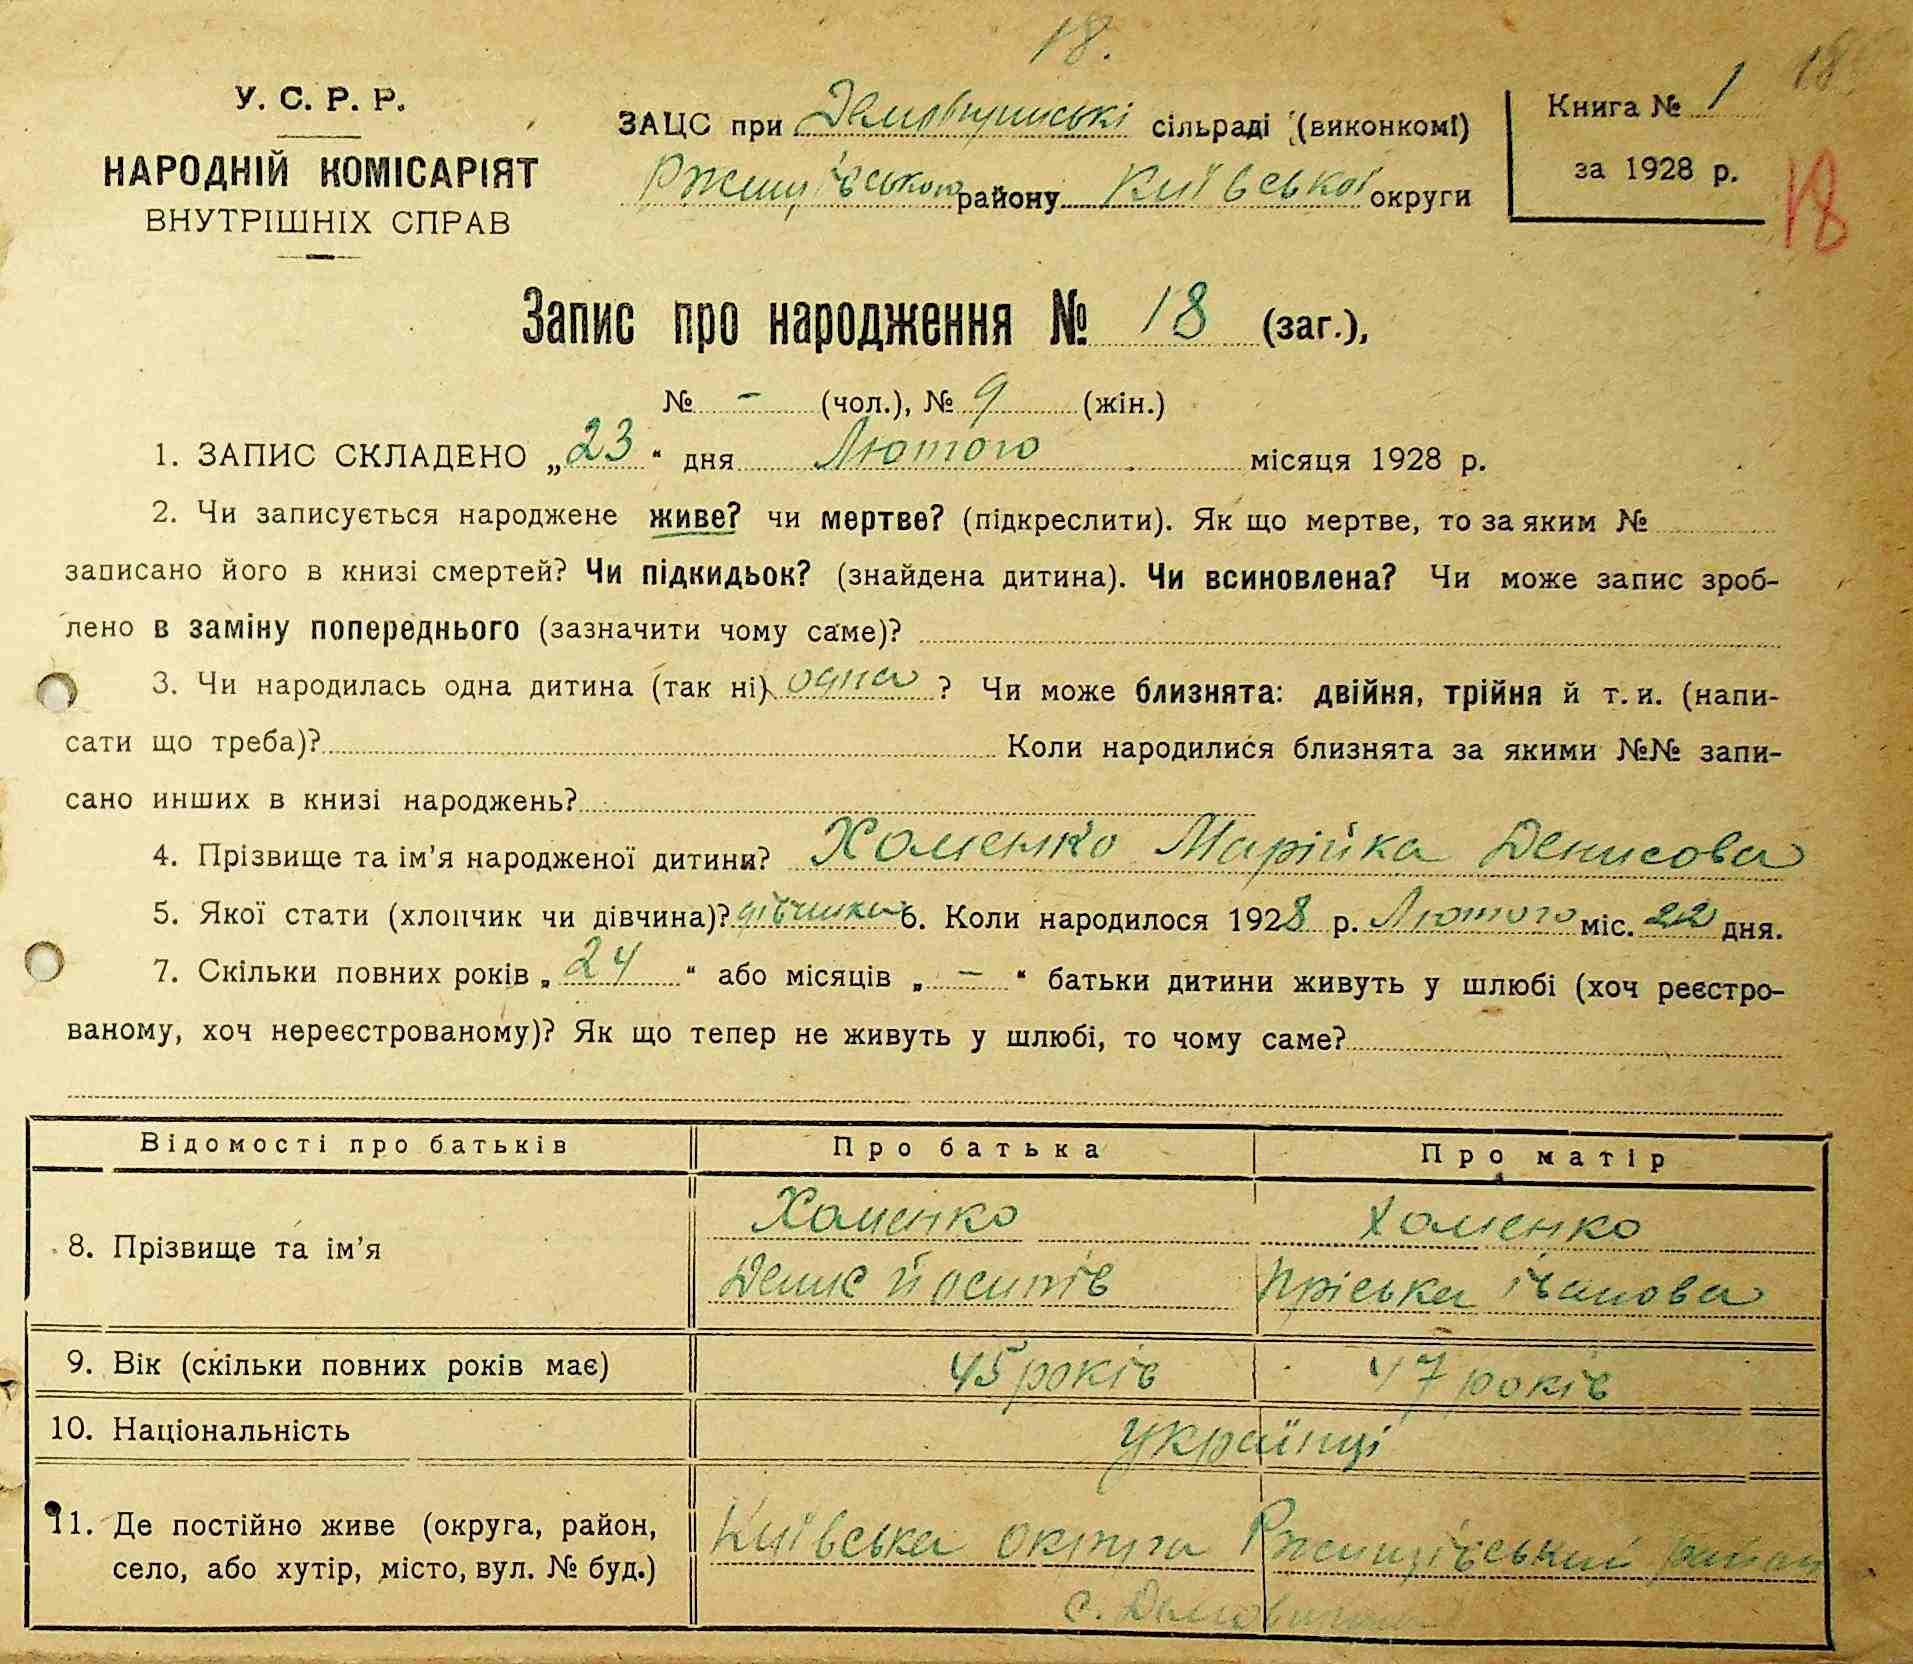 18.
18
У. С. Р. Р.
НАРОДНІЙ КОМІСАРІЯТ
ВНУТРІШНІХ СПРАВ
ЗАЦС при сільраді (виконкомі)
Ржищівського району Київської округи
Книга № 1
за 1928 р.
18
Запис про народження № 18 (заг.),
№ - (чол.), № 9 (жін.)
1. ЗАПИС СКЛАДЕНО „23“ дня Лютого місяця 1928 р.
2. Чи записується народжене живе? чи мертве? (підкреслити). Як що мертве, то за яким №
записано його в книзі смертей? Чи підкидьок? (знайдена дитина). Чи всиновлена? Чи може запис зроб-
лено в заміну попереднього (зазначити чому саме)?
3. Чи народилась одна дитина (так ні) одна ? Чи може близнята: двійня, трійня й т. и. (напи-
сати що треба)? Коли народилися близнята за якими №№ запи-
сано инших в книзі народжень?
4. Прізвище та ім’я народженої дитини? Хоменко Марійка Денисова
5. Якої стати (хлопчик чи дівчина)? дівчинка 6. Коли народилося 1928 р. Лютого міс. 22 дня.
7. Скільки повних років „24“ або місяців „—“ батьки дитини живуть у шлюбі (хоч реєстро-
ваному, хоч нереєстрованому)? Як що тепер не живуть у шлюбі, то чому саме?
Відомості про батьків Про батька Про матір
8. Прізвище та ім’я Хоменко Денис Йосипів Хоменко Пріська Іванова
9. Вік (скільки повних років має) 45 років 47 років
10. Національність українці
11. Де постійно живе (округа, район, Київська округа Ржищівський район
село, або хутір, місто, вул. № буд.) с.